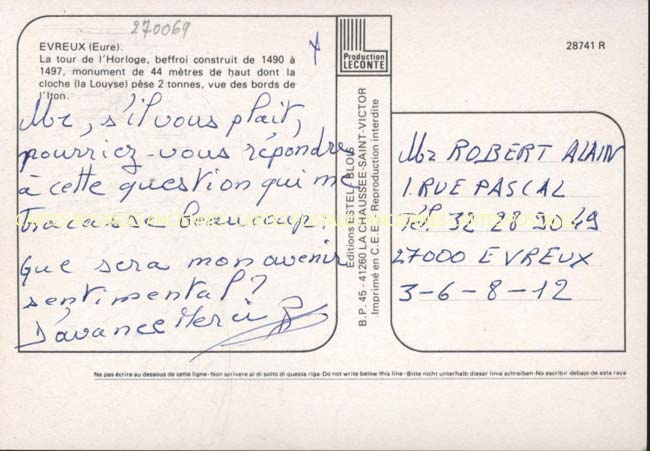 270069
EVREUX (Eure).
La tour de l'Horloge, beffroi construit de 1490 à
1497, monument de 44 mètres de haut dont la
cloche (la Louyse) pèse 2 tonnes, vue des bords de
l'Iton.
Mr, s'il vous plait,
pourriez-vous répondre
à cette question qui me
tracasse beaucoup.
Que sera mon avenir
sentimental?
D'avance Merci
Production
LECONTE
Editions ESTEL - BLOIS
B.P. 45 - 41260 LA CHAUSSEE-SAINT-VICTOR
Imprimé en C.E.E. - Reproduction interdite
28741 R
Mr ROBERT ALAIN
1. RUE PASCAL
Tél. 32 28 90 49
27000 EVREUX
3-6-8-12
Ne pas écrire au dessous de cette ligne - Non scrivere al di sotto di questa riga - Do not write below this line - Bitte nicht unterhalb dieser linie schreiben - No escribir debajo de esta raya